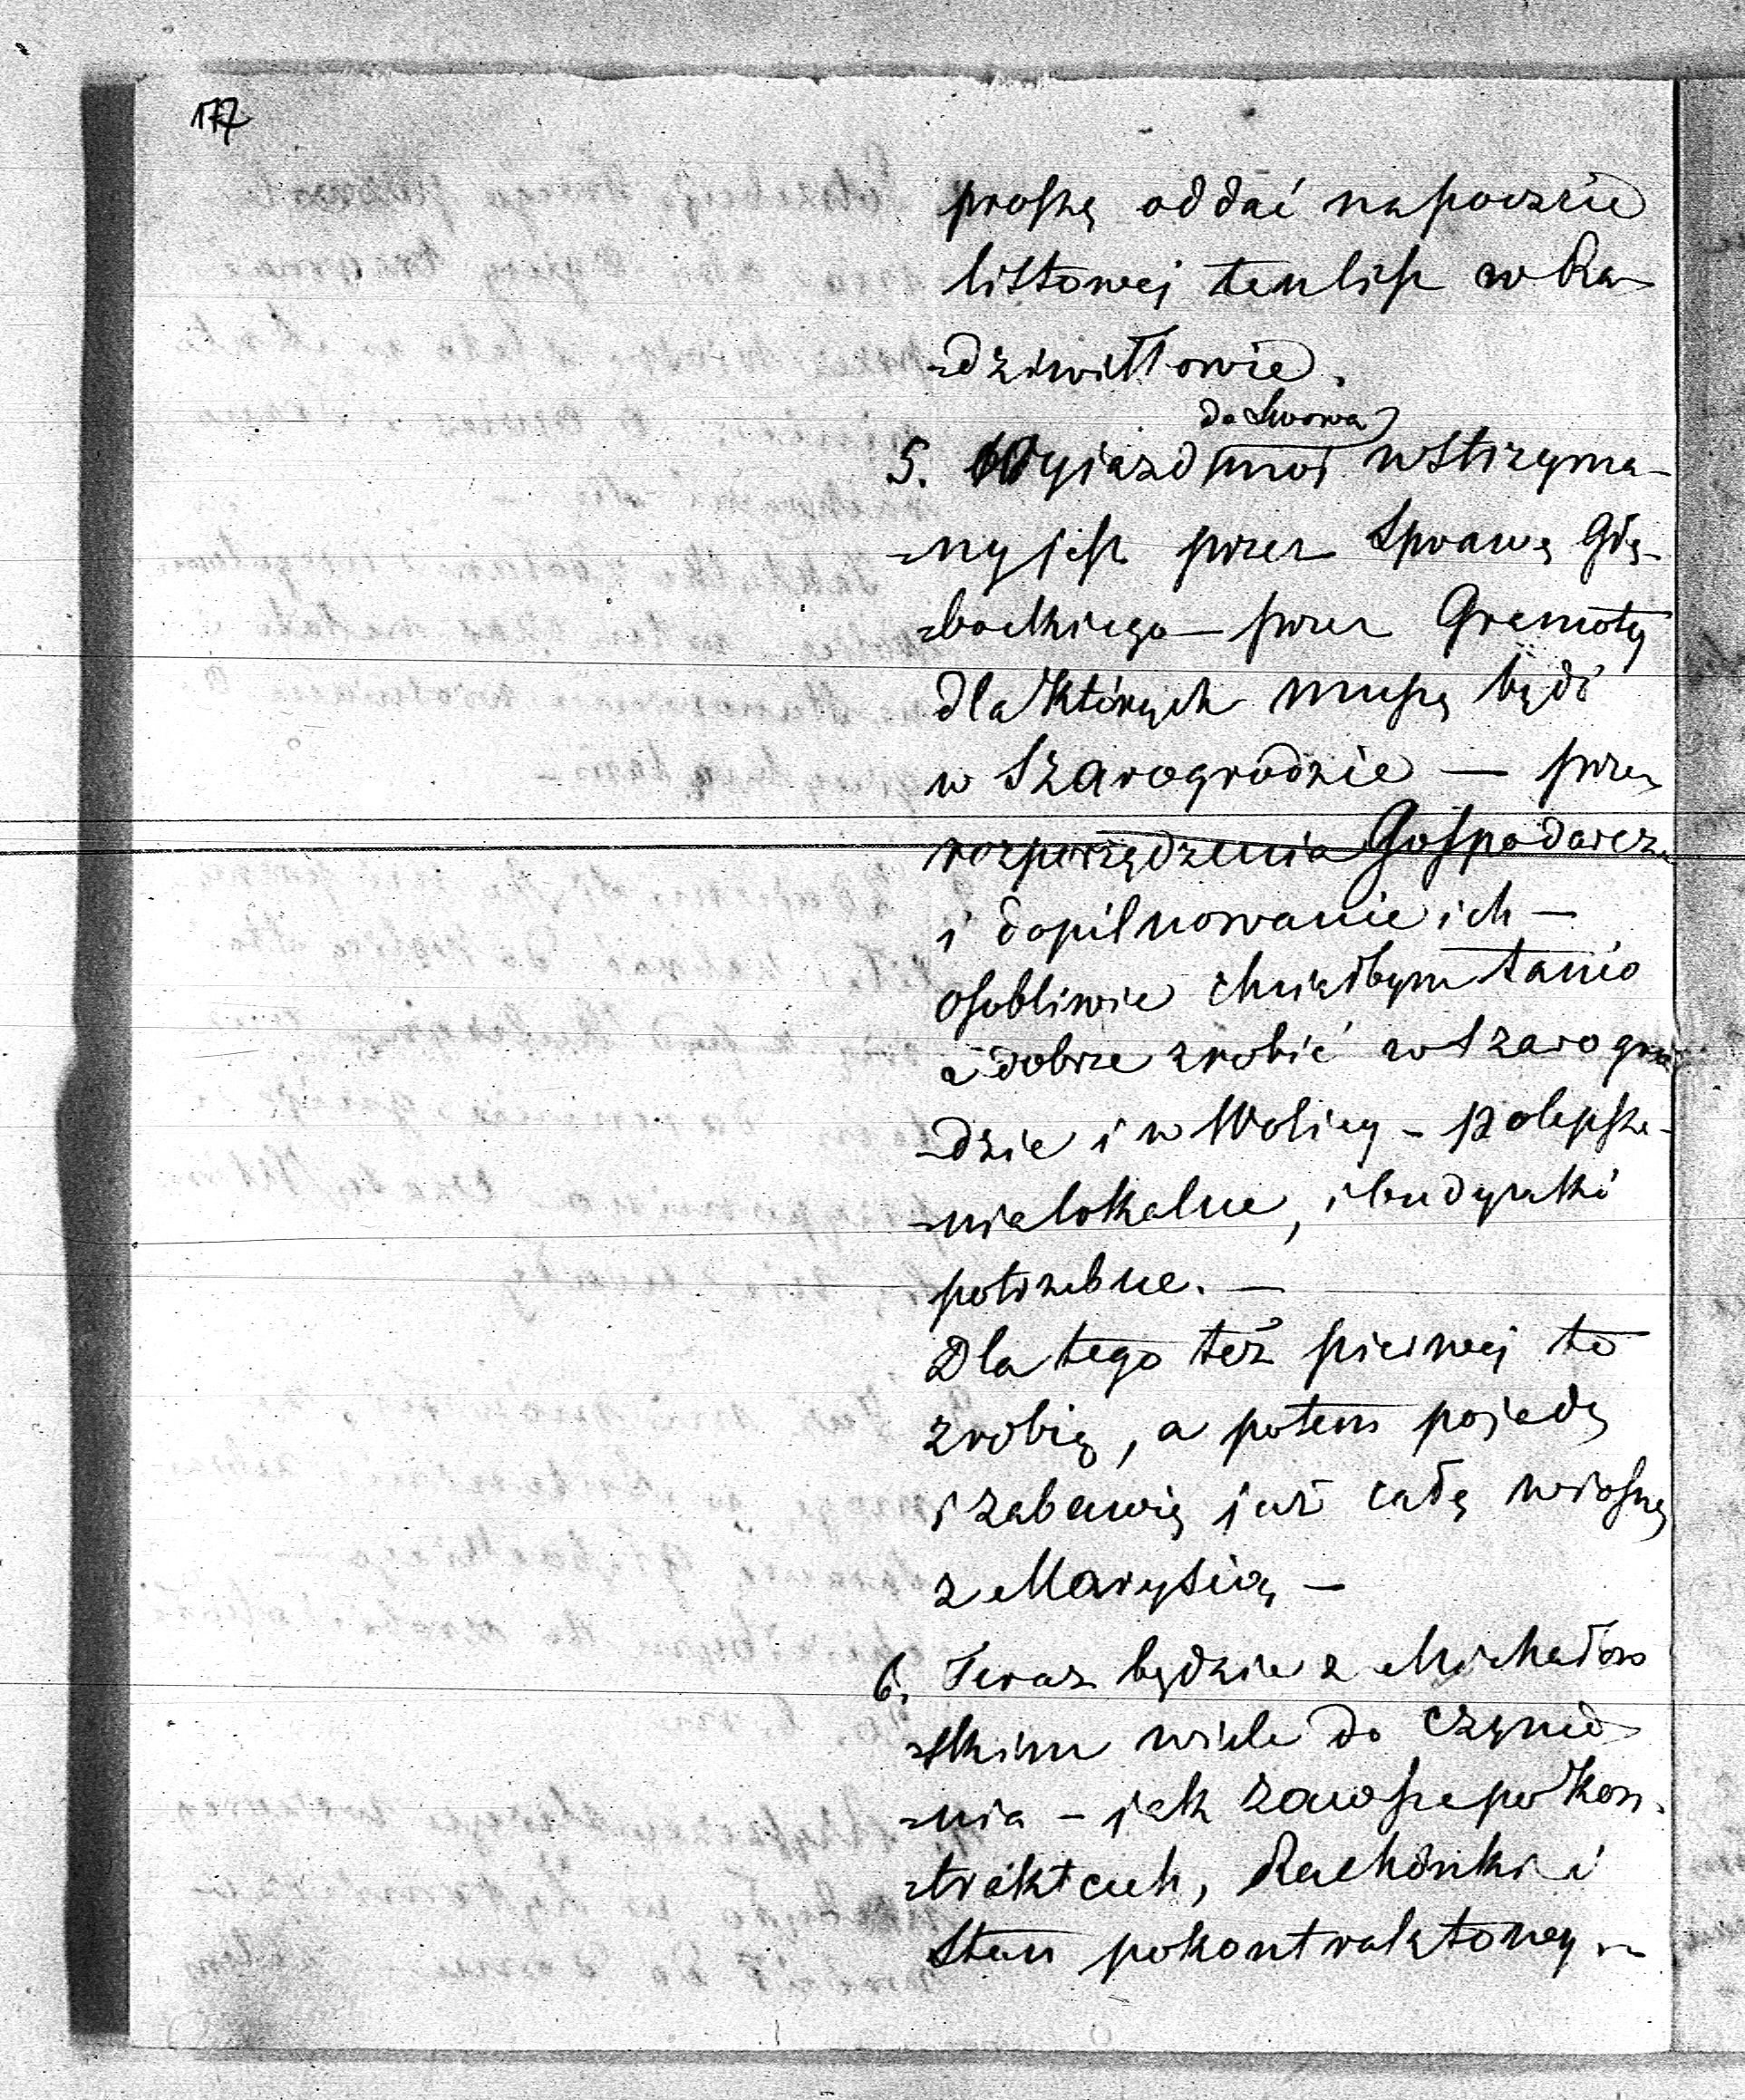 177
proszę oddać na poczcie
listowej ten list w Ra-
-dziwiłłowie.
do Lwowa
5. Wyjazd mój wstrzyma-
-ny jest przez Sprawę Głę-
-bockiego — przez Gramoty
dla których muszę bydź
w Szarogrodzie — przez
rozporządzenia Gospodarcze
i dopilnowanie ich —
osobliwie chciałbym tanio
a dobrze zrobić w Szarogro-
-dzie i w Wolicy – polepsze-
-nia lokalne, i budynki
potrzebne. —
Dla tego też pierwej to
zrobię, a potem pojadę
i zabawię już całą wiosnę
z Marysią —
6. Teraz będzie z Michałow
-skim wiele do czynie
-nia – jak zawsze po kon-
-traktach, Rachunki i
Stan pokontraktowy. —